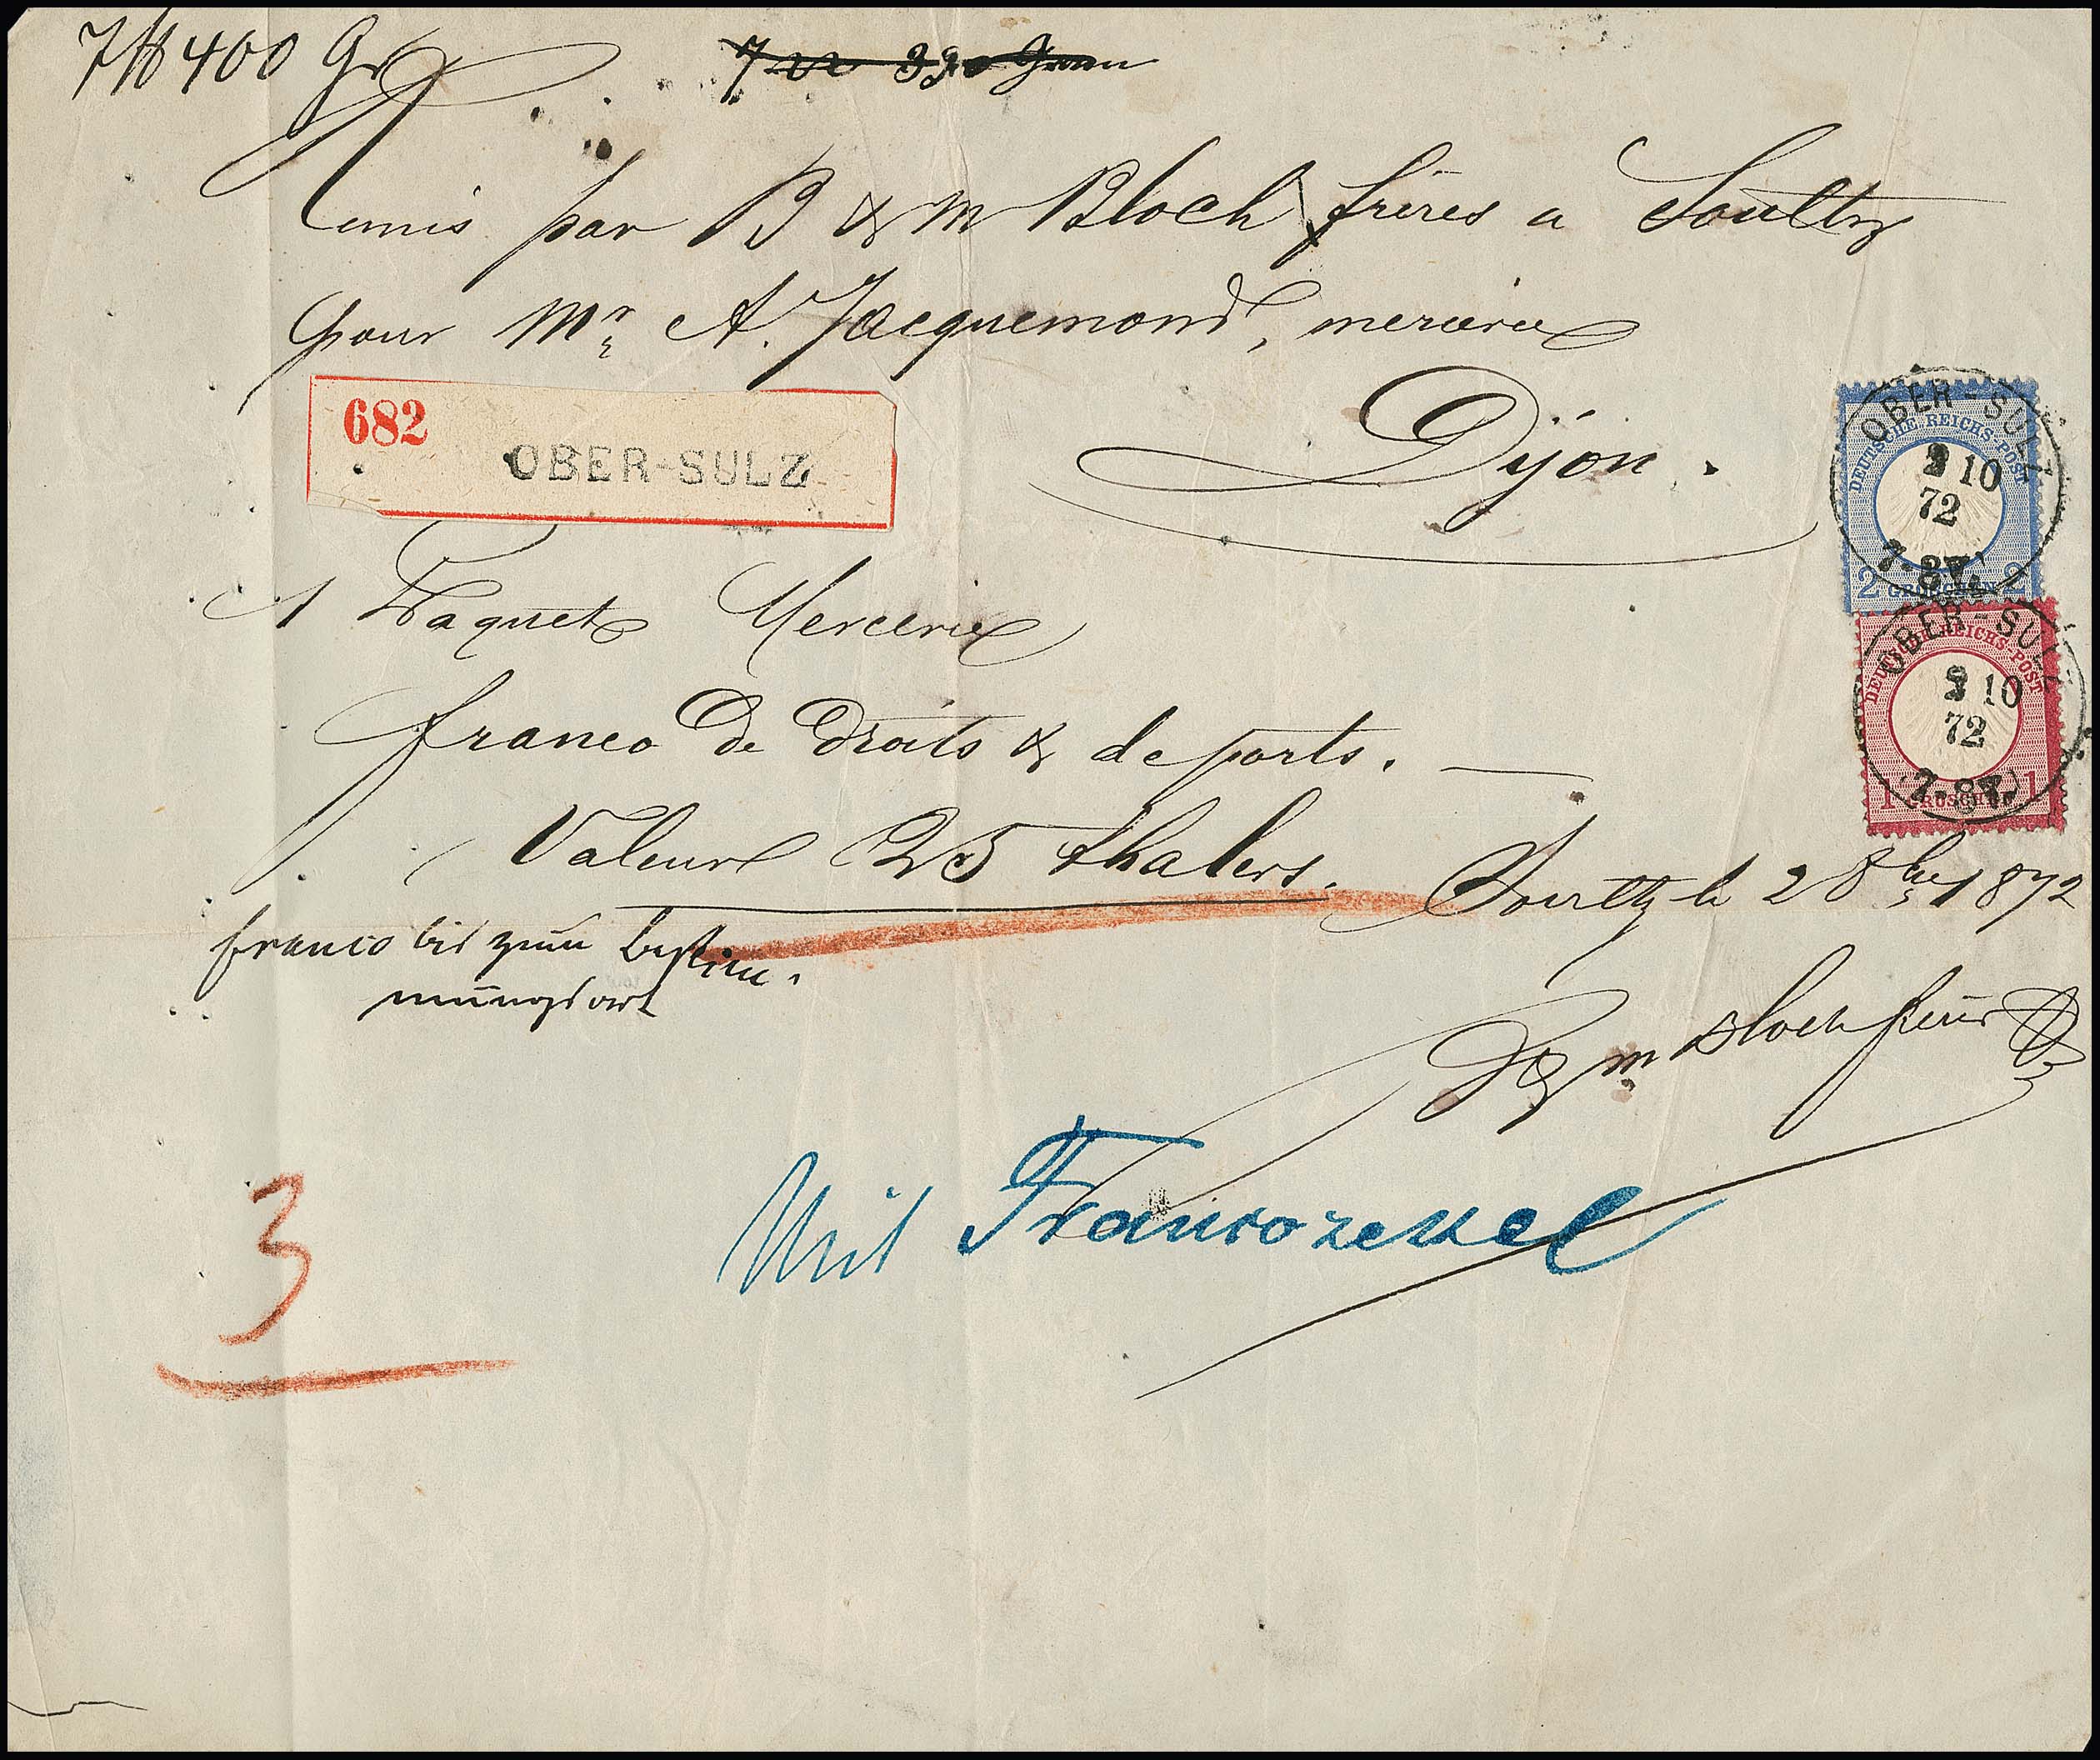 7 ℔ 400 Gr
Remis par B & M Bloch frères a Soultz
pour Mr A. Jacquemond, mercerie
Dijon.
682
OBER-SULZ
1 Paquet Mercerie
franco de droits & de ports.
Valeur 25 thalers.
Soultz le 2 8bre 1872
franco bis zum Bestim-
mungsort
B & M Bloch frères
Mit Francozettel
3
OBER-SULZ
DEUTSCHE REICHS-POST
2 10
72
2 GROSCHEN 2
OBER-SULZ
DEUTSCHE REICHS-POST
2 10
72
1 GROSCHEN 1